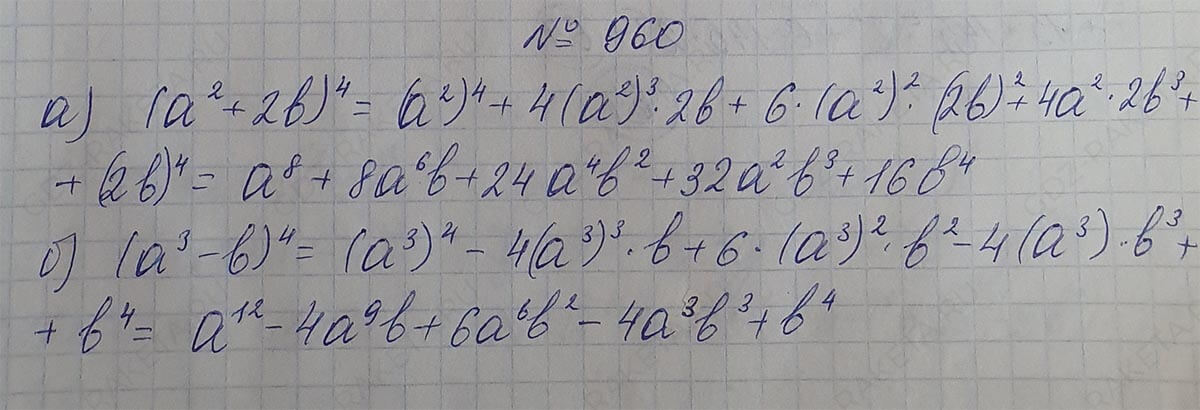 № 960
а) (a² + 2b)⁴ = (a²)⁴ + 4(a²)³·2b + 6·(a²)²·(2b)² + 4a²·2b³ +
+ (2b)⁴ = a⁸ + 8a⁶b + 24a⁴b² + 32a²b³ + 16b⁴
б) (a³ - b)⁴ = (a³)⁴ - 4(a³)³·b + 6·(a³)²·b² - 4(a³)·b³ +
+ b⁴ = a¹² - 4a⁹b + 6a⁶b² - 4a³b³ + b⁴